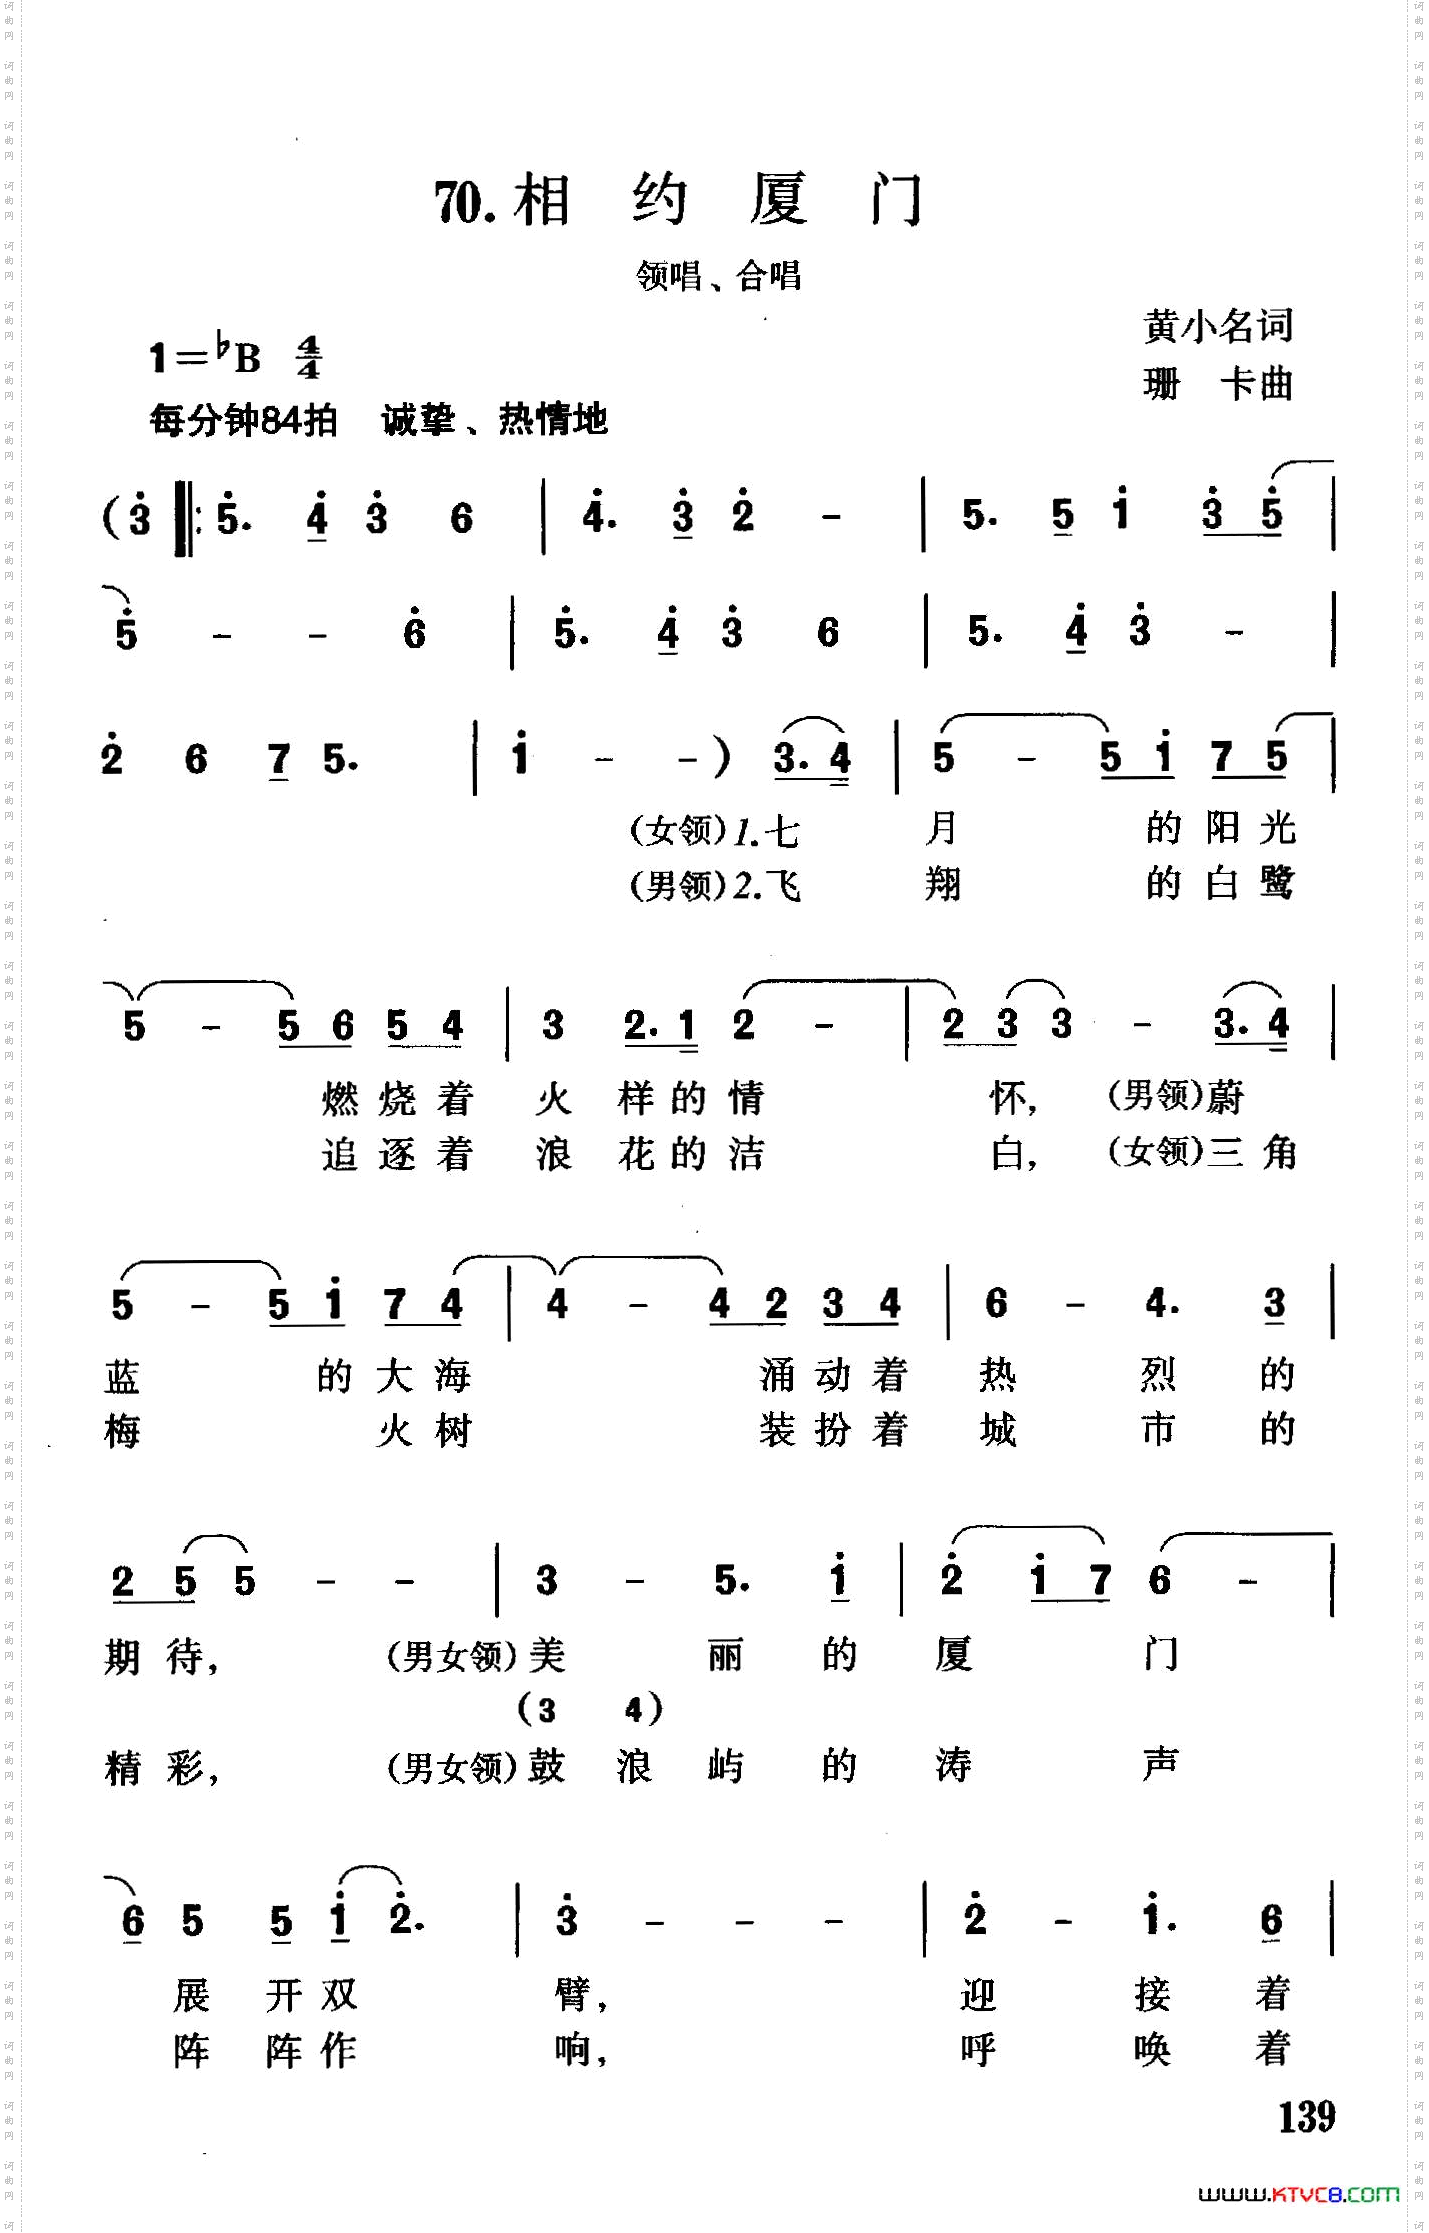 70.相 约 厦 门
领唱、合唱
黄小名词
1=♭B 4/4
珊 卡曲
每分钟84拍 诚挚、热情地
(3̇ ‖: 5̇. 4̇ 3̇ 6 | 4̇. 3̇ 2̇ - | 5. 5 1̇ 3̇ 5̇ |
5̇ - - 6̇ | 5̇. 4̇ 3̇ 6 | 5. 4̇ 3̇ - |
2̇ 6 7 5. | 1̇ - -) 3. 4 | 5 - 5 1̇ 7 5 |
(女领)1.七 月 的 阳 光
(男领)2.飞 翔 的 白 鹭
5 - 5 6 5 4 | 3 2. 1 2 - | 2 3 3 - 3. 4 |
燃 烧 着 火 样 的 情 怀, (男领)蔚
追 逐 着 浪 花 的 洁 白, (女领)三 角
5 - 5 1̇ 7 4 | 4 - 4 2 3 4 | 6 - 4. 3 |
蓝 的 大 海 涌 动 着 热 烈 的
梅 火 树 装 扮 着 城 市 的
2 5 5 - - | 3 - 5. 1̇ | 2̇ 1̇ 7 6 - |
期 待, (男女领)美 丽 的 厦 门
(3 4)
精 彩, (男女领)鼓 浪 屿 的 涛 声
6 5 5 1̇ 2̇. | 3̇ - - - | 2̇ - 1̇. 6 |
展 开 双 臂, 迎 接 着
阵 阵 作 响, 呼 唤 着
139
www.KTVC8.COM